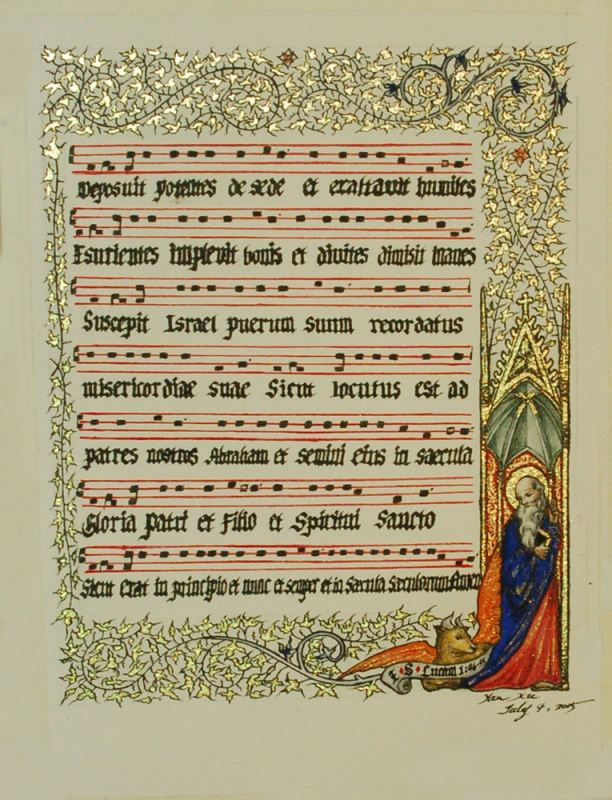 Deposuit potentes de sede et exaltavit humiles
Esurientes implevit bonis et divites dimisit inanes
Suscepit Israel puerum suum recordatus
misericordiae suae Sicut locutus est ad
patres nostros Abraham et semini eius in saecula
Gloria Patri et Filio et Spiritui Sancto
Sicut erat in principio et nunc et semper et in Saecula Saeculorum Amen
S Lucam 1:46-55
Xan Xu
July 4, 2015